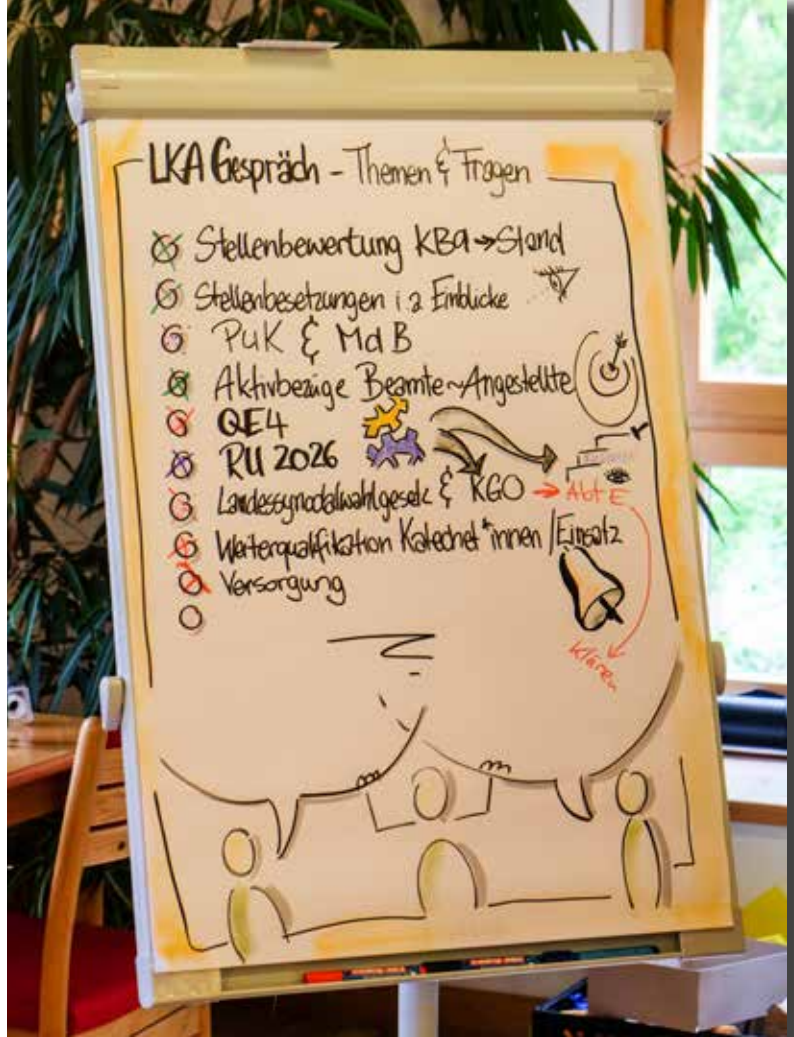 LKA Gespräch - Themen & Fragen
Stellenbewertung KBa → Stand
Stellenbesetzungen i 2 Einblicke
PuK & MdB
Aktivbezüge Beamte~Angestellte
QE4
RU 2026
Landessynodalwahlgesetz & KGO → Abt E
Weiterqualifikation Katechet*innen /Einsatz
Versorgung
Klären